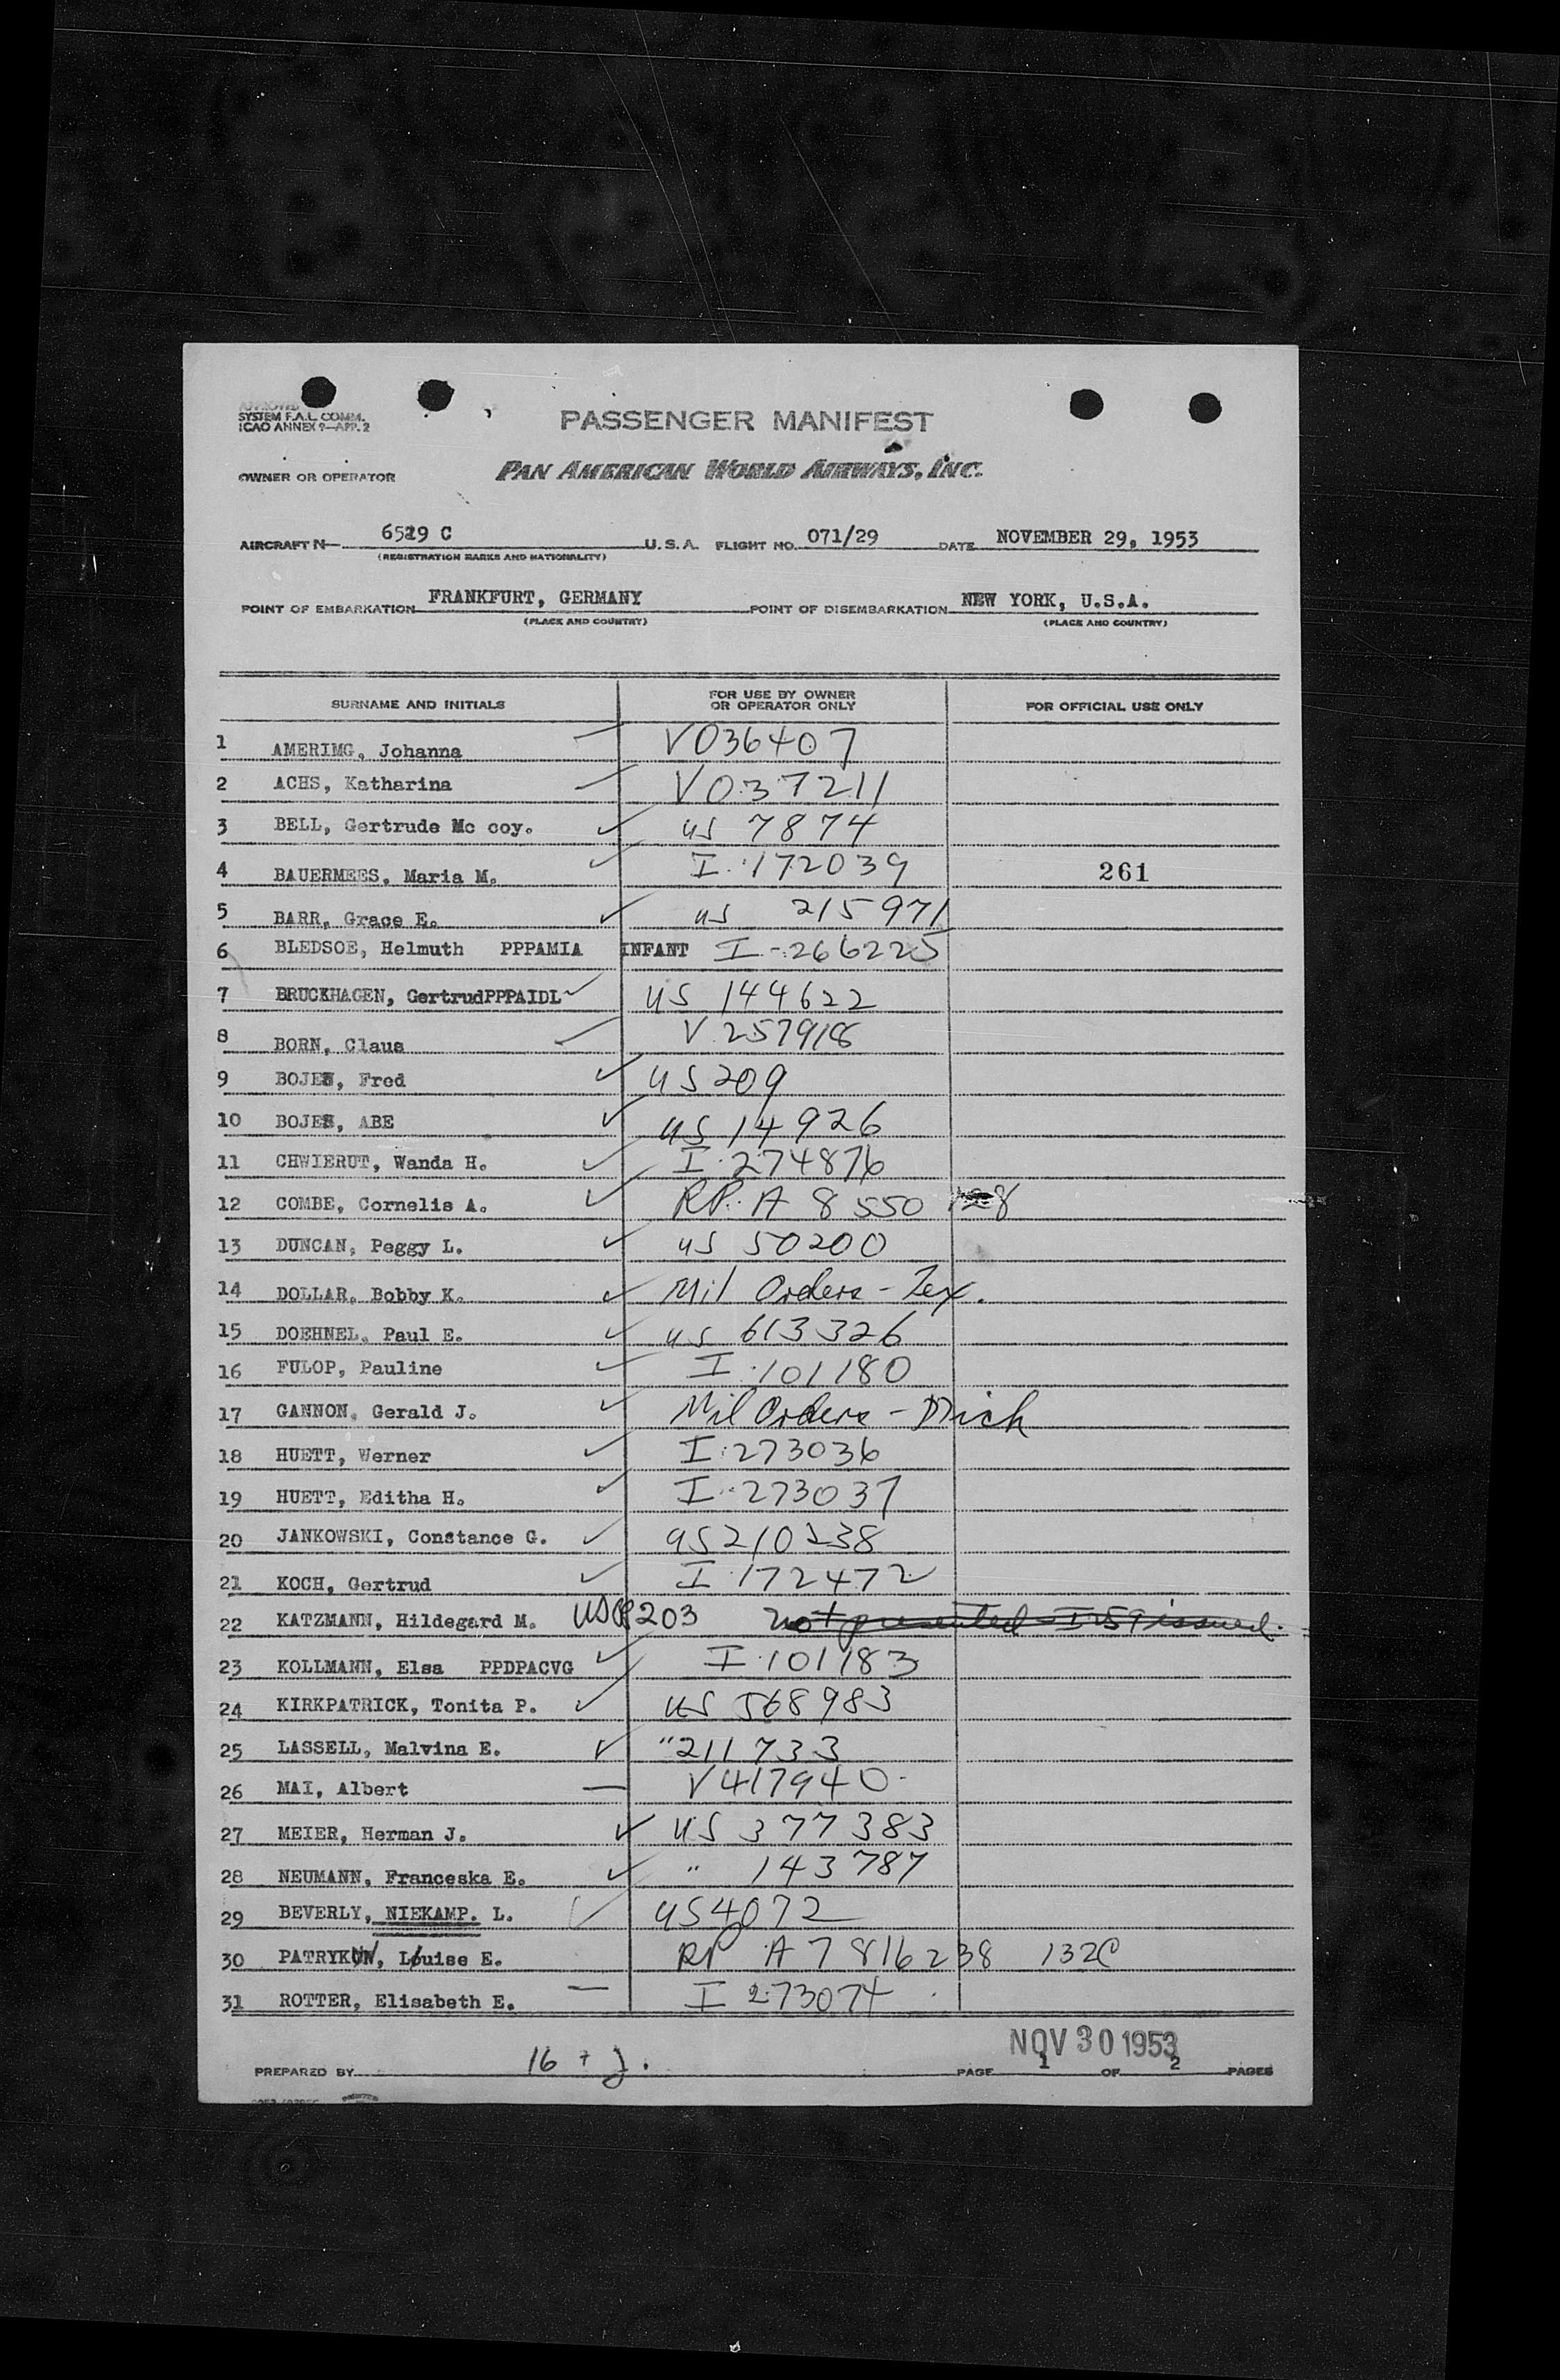 SYSTEM F.A.L. COMM.
ICAO ANNEX 9—APP. 2
PASSENGER MANIFEST
OWNER OR OPERATOR PAN AMERICAN WORLD AIRWAYS, INC.
AIRCRAFT N— 6519 C U.S.A. FLIGHT NO. 071/29 DATE NOVEMBER 29, 1953
(REGISTRATION MARKS AND NATIONALITY)
POINT OF EMBARKATION FRANKFURT, GERMANY POINT OF DISEMBARKATION NEW YORK, U.S.A.
(PLACE AND COUNTRY) (PLACE AND COUNTRY)
SURNAME AND INITIALS FOR USE BY OWNER OR OPERATOR ONLY FOR OFFICIAL USE ONLY
1 AMERIMG, Johanna V036407
2 ACHS, Katharina V037211
3 BELL, Gertrude Mc coy. US 7874
4 BAUERMEES, Maria M. I.172039 261
5 BARR, Grace E. US 215971
6 BLEDSOE, Helmuth PPPAMIA INFANT I-266225
7 BRUCKHAGEN, GertrudPPPAIDL US 144622
8 BORN, Claus V 257918
9 BOJEN, Fred US 209
10 BOJEN, ABE US 14926
11 CHWIERUT, Wanda H. I.274876
12 COMBE, Cornelis A. RP. A 8 550 128
13 DUNCAN, Peggy L. US 50200
14 DOLLAR, Bobby K. Mil Orders - Tex.
15 DOEHNEL, Paul E. US 613326
16 FULOP, Pauline I.101180
17 GANNON, Gerald J. Mil Orders - Mich
18 HUETT, Werner I.273036
19 HUETT, Editha H. I.273037
20 JANKOWSKI, Constance G. US 210238
21 KOCH, Gertrud I 172472
22 KATZMANN, Hildegard M. 203 not presented I-259 issued.
23 KOLLMANN, Elsa PPDPACVG I.101183
24 KIRKPATRICK, Tonita P. US 568983
25 LASSELL, Malvina E. " 211733
26 MAI, Albert V417940
27 MEIER, Herman J. US 377383
28 NEUMANN, Franceska E. " 143787
29 BEVERLY, NIEKAMP. L. US4072
30 PATRYKUN, Louise E. RP A7 816238 132C
31 ROTTER, Elisabeth E. I 273074
NOV 30 1953
PREPARED BY 16 + J. PAGE 1 OF 2 PAGES